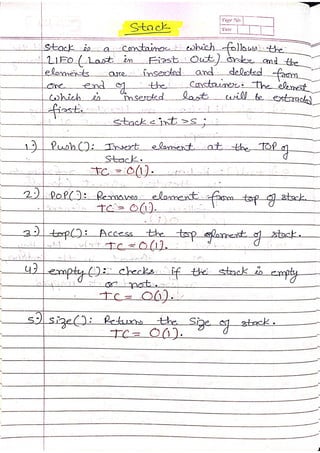 Stack
Page No.
Date
Stack is a container which follows the
LIFO (Last in First Out) order and the
elements are inserted and deleted from
one end of the container. The element
which is inserted last will be extracted
first.
stack<int>s;
1) Push(): Insert element at the TOP of
Stack.
TC = O(1).
2) POP(): Removes element from top of stack
TC = O(1).
3) top(): Access the top element of stack.
TC = O(1).
4) empty(): checks if the stack is empty
or not.
TC = O(1).
5) size(): Returns the size of stack.
TC = O(1).